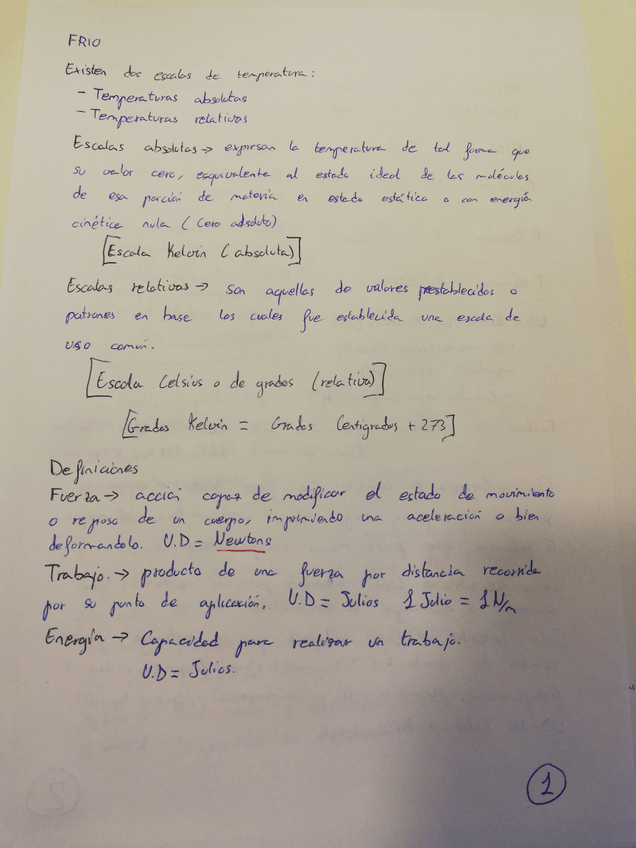 FRIO
Existen dos escalas de temperatura:
- Temperaturas absolutas
- Temperaturas relativas
Escalas absolutas → expresan la temperatura de tal forma que
su valor cero, equivalente al estado ideal de las moléculas
de esa porción de materia en estado estático o con energía
cinética nula (Cero absoluto)
[Escala Kelvin (absoluta)]
Escalas relativas → son aquellas de valores prestablecidos o
patrones en base los cuales fue establecida una escala de
uso común.
[Escala Celsius o de grados (relativa)]
[Grados Kelvin = Grados Centigrados + 273]
Definiciones
Fuerza → acción capaz de modificar el estado de movimiento
o reposo de un cuerpo, imprimiendo una aceleración o bien
deformandolo. U.D = Newtons
Trabajo. → producto de una fuerza por distancia recorrida
por su punto de aplicación. U.D = Julios 1 Julio = 1 N/m
Energía → Capacidad para realizar un trabajo.
U.D = Julios.
1